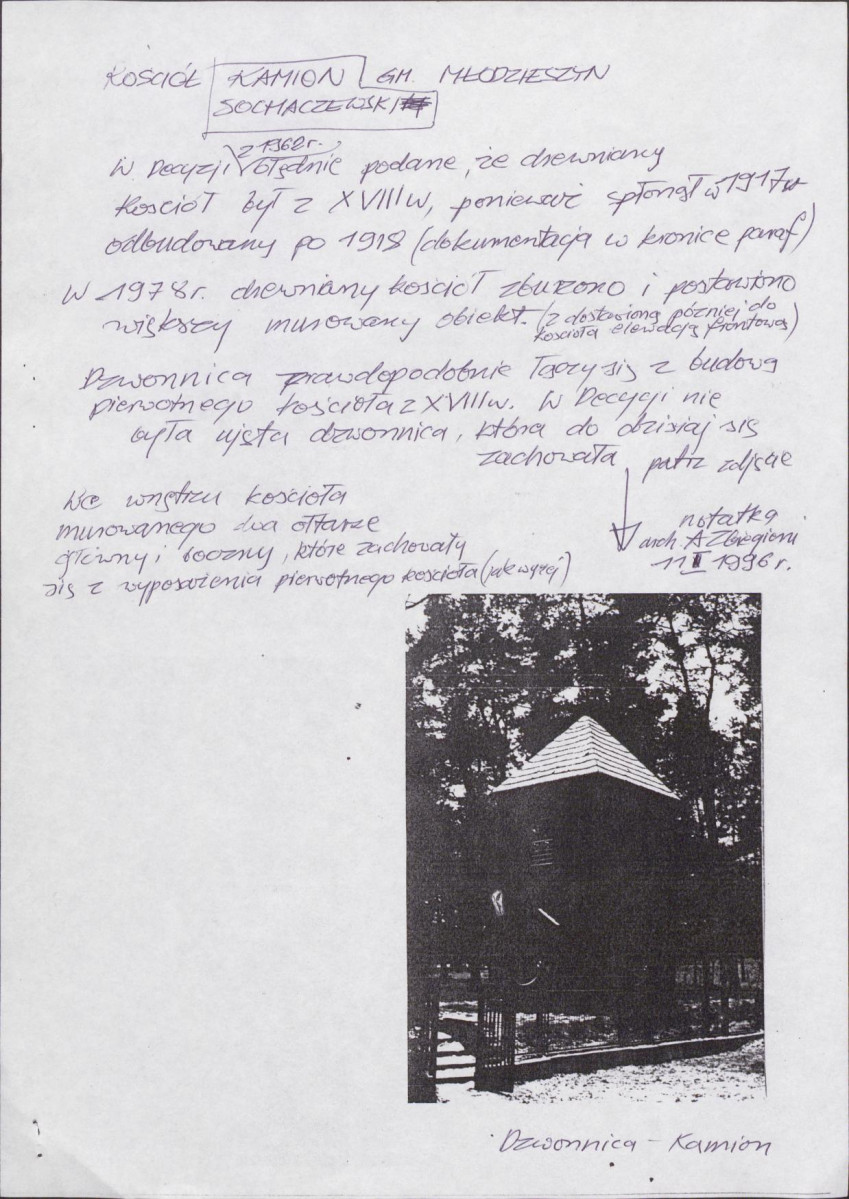 KOŚCIÓŁ KAMION GM. MŁODZIESZYN
SOCHACZEWSKI
z 1962 r.
W Decyzji błędnie podane, że drewniany
kościół był z XVIII w, ponieważ spłonął w 1917 r
odbudowany po 1918 (dokumentacja w kronice paraf)
W 1978 r. drewniany kościół zburzono i postawiono
większy murowany obiekt. (z dostawioną później do
kościoła elewacją frontową)
Dzwonnica prawdopodobnie łączy się z budową
pierwotnego kościoła z XVIII w. W Decyzji nie
była ujęta dzwonnica, która do dzisiaj się
zachowała patrz zdjęcie
We wnętrzu kościoła
murowanego dwa ołtarze
główny i boczny, które zachowały
się z wyposażenia pierwotnego kościoła (jak wyżej)
notatka
arch. A
11 II 1996 r.
Dzwonnica - Kamion